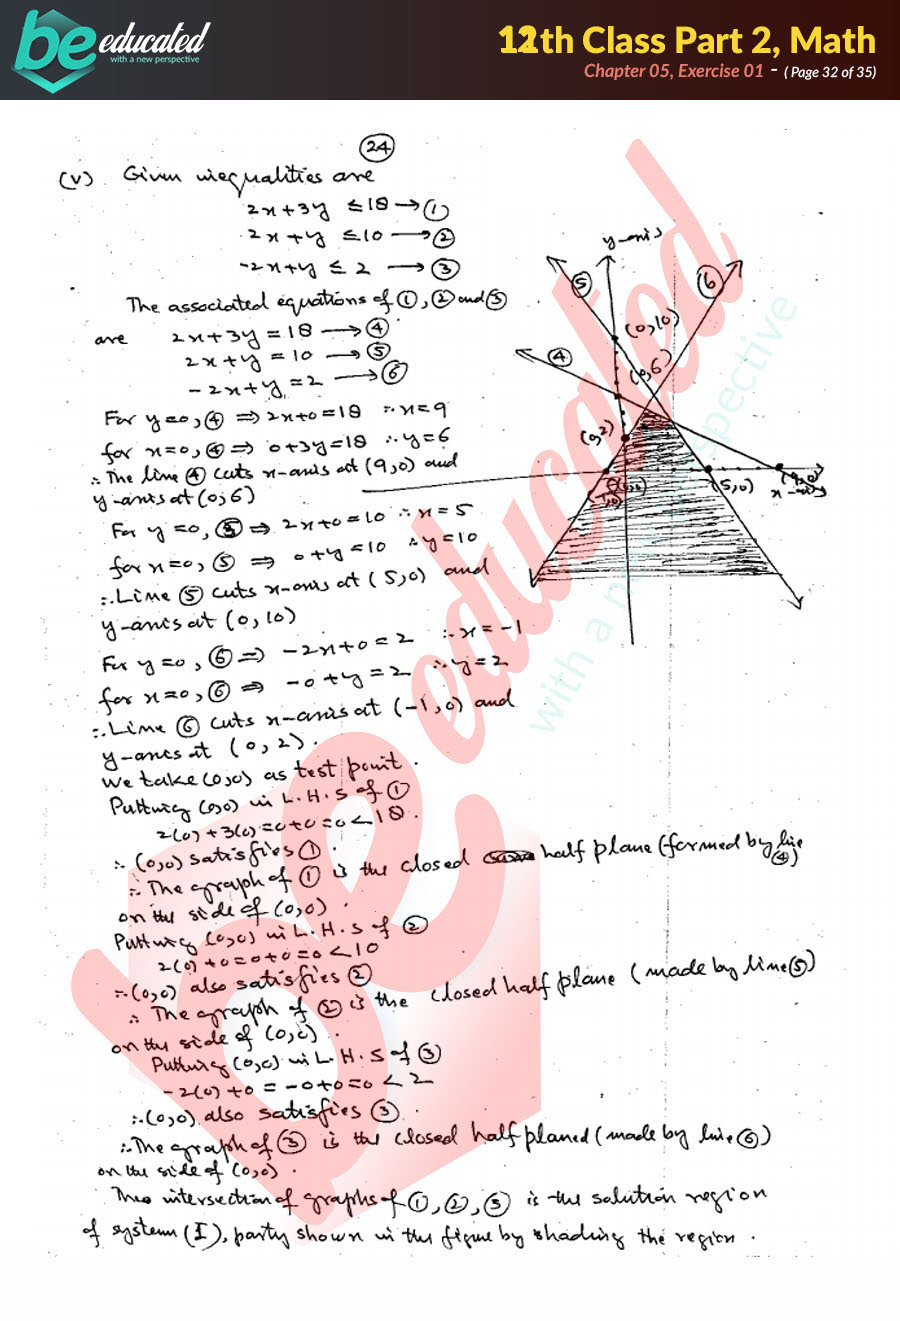 be educated
with a new perspective
12th Class Part 2, Math
Chapter 05, Exercise 01 - ( Page 32 of 35)
24
(v) Given inequalities are
2x+3y ≤ 18 → ①
2x+y ≤ 10 → ②
-2x+y ≤ 2 → ③
The associated equations of ①, ② and ③
are 2x+3y = 18 → ④
2x+y = 10 → ⑤
-2x+y = 2 → ⑥
For y=0, ④ ⇒ 2x+0=18 ∴ x=9
for x=0, ④ ⇒ 0+3y=18 ∴ y=6
∴ The line ④ cuts x-axis at (9,0) and
y-axis at (0,6)
For y=0, ⑤ ⇒ 2x+0=10 ∴ x=5
for x=0, ⑤ ⇒ 0+y=10 ∴ y=10
∴ Line ⑤ cuts x-axis at (5,0) and
y-axis at (0,10)
For y=0, ⑥ ⇒ -2x+0=2 ∴ x=-1
for x=0, ⑥ ⇒ -0+y=2 ∴ y=2
∴ Line ⑥ cuts x-axis at (-1,0) and
y-axis at (0,2).
We take (0,0) as test point.
Putting (0,0) in L.H.S of ①
2(0)+3(0)=0+0=0<18.
∴ (0,0) satisfies ①.
∴ The graph of ① is the closed half plane (formed by line ④)
on the side of (0,0).
Putting (0,0) in L.H.S of ②
2(0)+0=0+0=0<10
∴ (0,0) also satisfies ②
∴ The graph of ② is the closed half plane (made by line ⑤)
on the side of (0,0).
Putting (0,0) in L.H.S of ③
-2(0)+0 = -0+0=0<2
∴ (0,0) also satisfies ③.
∴ The graph of ③ is the closed half planed (made by line ⑥)
on the side of (0,0).
The intersection of graphs of ①, ②, ③ is the solution region
of system (I), party shown in the figure by shading the region.
y-axis
⑤
⑥
(0,10)
④
(0,6)
(0,2)
(0,0)
(-1,0)
(5,0)
(9,0)
x-axis
be educated
with a new perspective